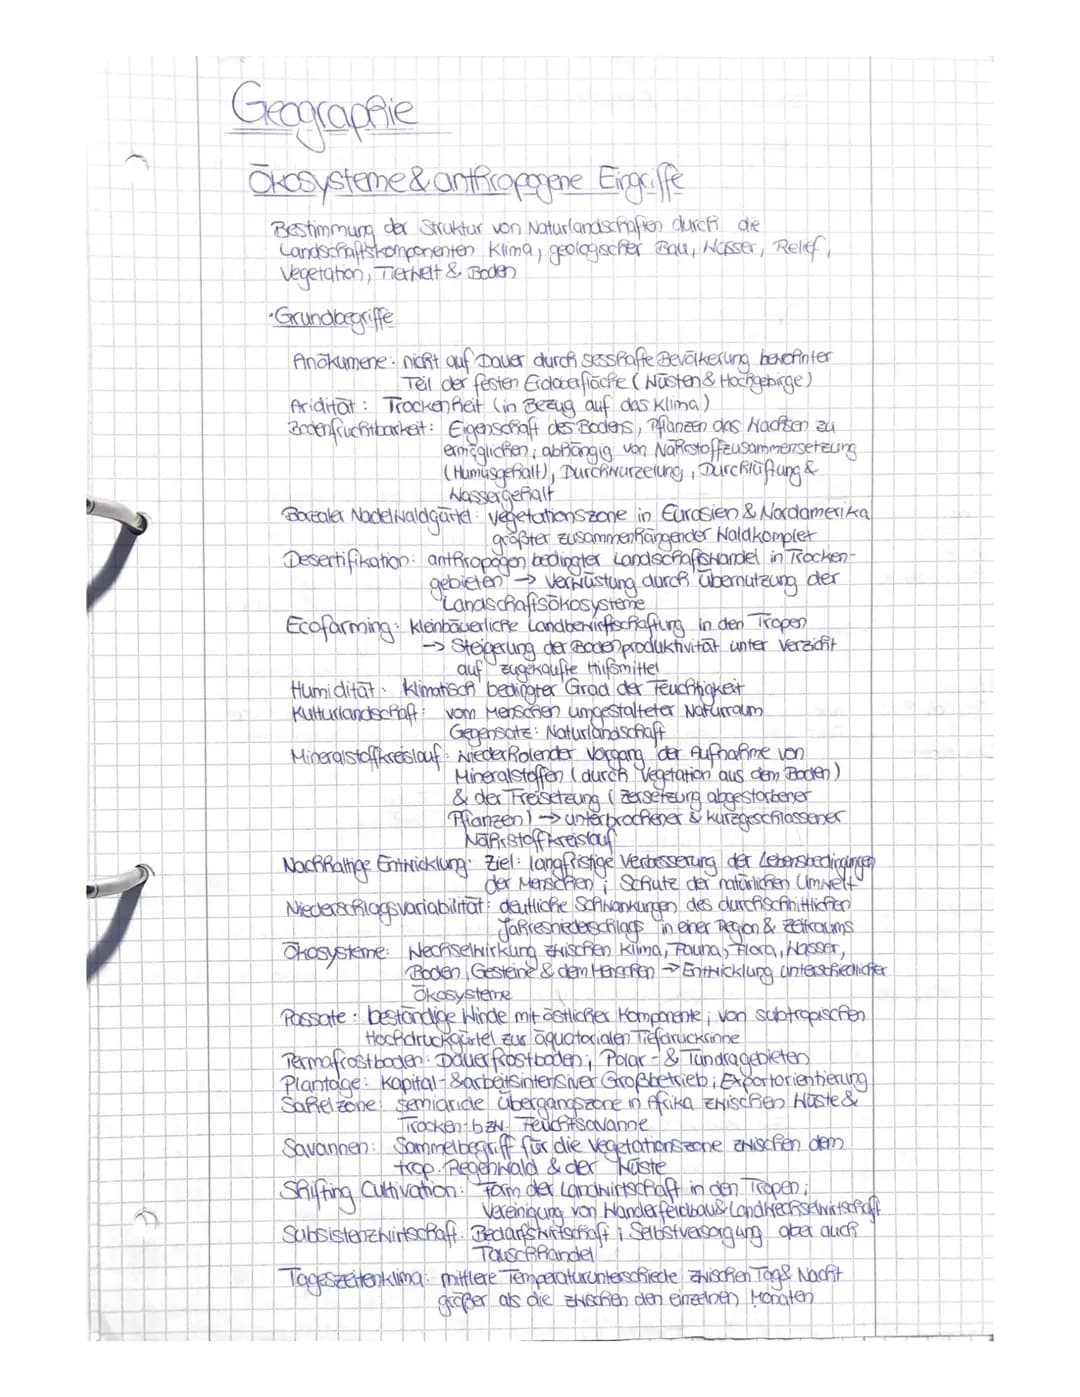 Geographie
Ökosysteme & anthropogene Eingriffe
Bestimmung der Struktur von Naturlandschaften durch die
Landschaftskomponenten Klima, geologischer Bau, Wasser, Relief,
Vegetation, Tierwelt & Boden
·Grundbegriffe
Anökumene: nicht auf Dauer durch sesshafte Bevölkerung bewohnter
Teil der festen Erdoberfläche (Wüsten & Hochgebirge)
Aridität: Trockenheit (in Bezug auf das Klima)
Bodenfruchtbarkeit: Eigenschaft des Bodens, Pflanzen das Wachsen zu
ermöglichen; abhängig von Nährstoffzusammensetzung
(Humusgehalt), Durchwurzelung, Durchlüftung &
Wassergehalt
Borealer Nadelwaldgürtel: Vegetationszone in Eurasien & Nordamerika
größter zusammenhängender Waldkomplex
Desertifikation: anthropogen bedingter Landschaftswandel in Trocken-
gebieten → Verwüstung durch Übernutzung der
Landschaftsökosysteme
Ecofarming: kleinbäuerliche Landbewirtschaftung in den Tropen
→ Steigerung der Bodenproduktivität unter Verzicht
auf zugekaufte Hilfsmittel
Humidität: klimatisch bedingter Grad der Feuchtigkeit
Kulturlandschaft: vom Menschen umgestalteter Naturraum
Gegensatz: Naturlandschaft
Mineralstoffkreislauf: Wiederholender Vorgang der Aufnahme von
Mineralstoffen (durch Vegetation aus dem Boden)
& der Freisetzung (Zersetzung abgestorbener
Pflanzen) → unterbrochener & kurzgeschlossener
Nährstoffkreislauf
Nachhaltige Entwicklung: Ziel: langfristige Verbesserung der Lebensbedingungen
der Menschen; Schutz der natürlichen Umwelt
Niederschlagsvariabilität: deutliche Schwankungen des durchschnittlichen
Jahresniederschlags in einer Region & Zeitraums
Ökosysteme: Wechselwirkung zwischen Klima, Fauna, Flora, Wasser,
Boden, Gesteine & dem Menschen → Entwicklung unterschiedlicher
Ökosysteme
Passate: beständige Winde mit östlicher Komponente; von subtropischen
Hochdruckgürtel zur äquatorialen Tiefdruckrinne
Permafrostboden: Dauerfrostboden; Polar- & Tundragebieten
Plantage: Kapital- & arbeitsintensiver Großbetrieb; Exportorientierung
Sahelzone: semiaride Übergangszone in Afrika zwischen Wüste &
Trocken- bzw. Feuchtsavanne
Savannen: Sammelbegriff für die Vegetationszone zwischen dem
trop. Regenwald & der Wüste
Shifting Cultivation: Form der Landwirtschaft in den Tropen;
Vereinigung von Wanderfeldbau & Landwechselwirtschaft
Subsistenzwirtschaft: Bedarfswirtschaft; Selbstversorgung aber auch
Tauschhandel
Tageszeitenklima: mittlere Temperaturunterschiede zwischen Tag & Nacht
größer als die zwischen den einzelnen Monaten